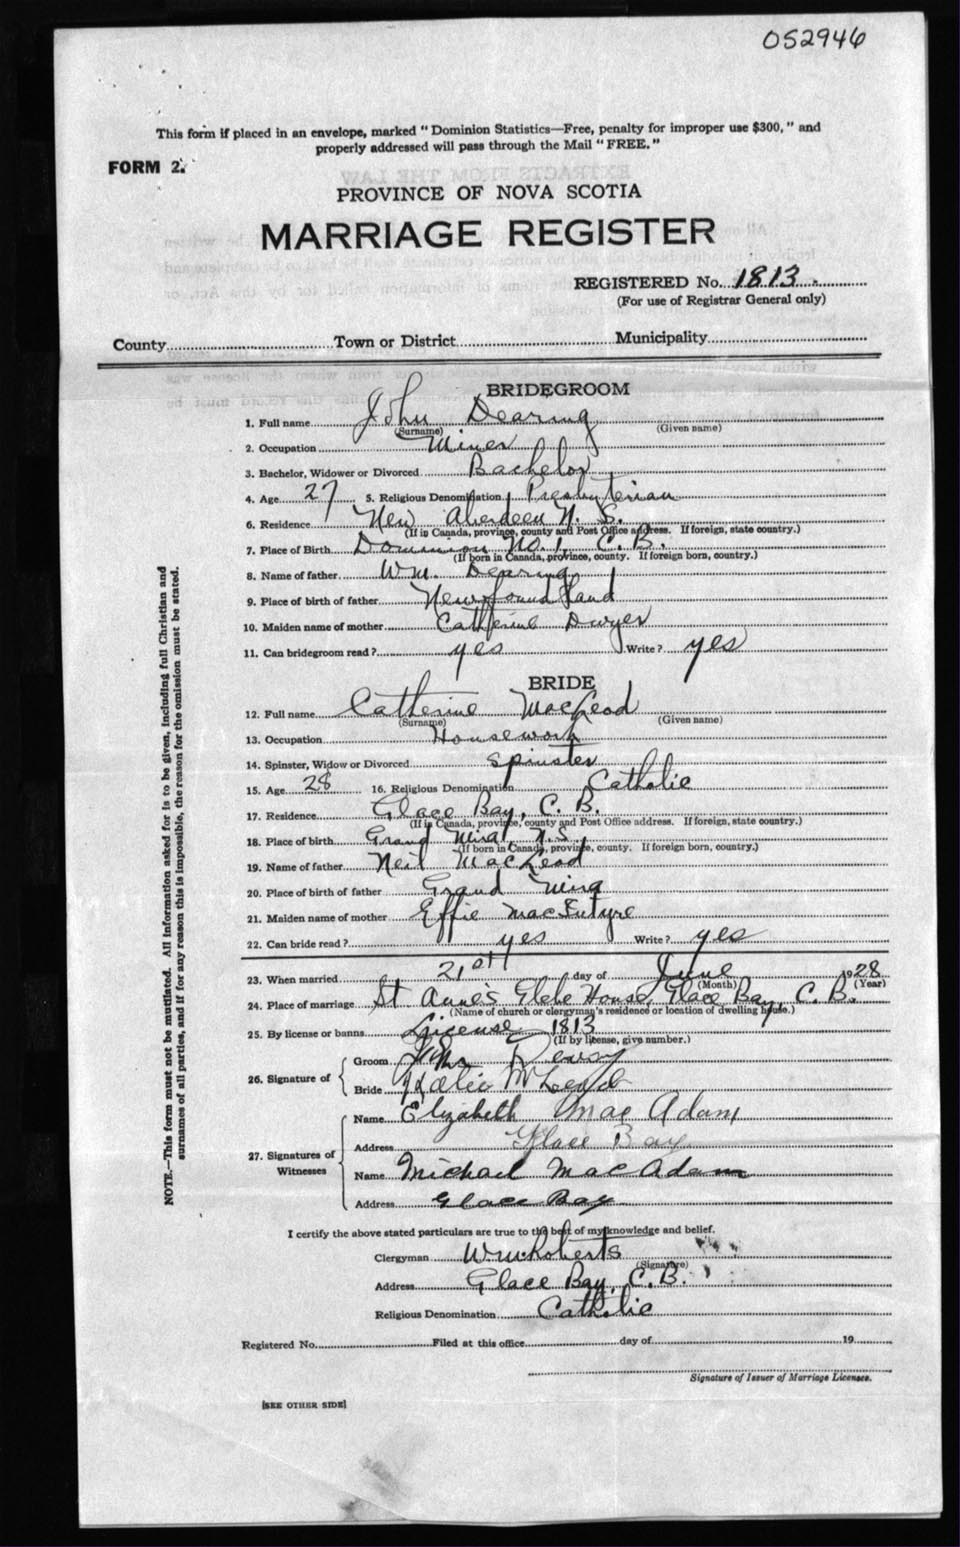 052946
This form if placed in an envelope, marked "Dominion Statistics—Free, penalty for improper use $300," and
properly addressed will pass through the Mail "FREE."
FORM 2.
PROVINCE OF NOVA SCOTIA
MARRIAGE REGISTER
REGISTERED No. 1813
(For use of Registrar General only)
County Town or District Municipality
BRIDEGROOM
1. Full name John Dearing
(Surname) (Given name)
2. Occupation Miner
3. Bachelor, Widower or Divorced Bachelor
4. Age 27 5. Religious Denomination Presbyterian
6. Residence New Aberdeen N. S.
(If in Canada, province, county and Post Office address. If foreign, state country.)
7. Place of Birth Dominion No. 1, C. B.
(If born in Canada, province, county. If foreign born, country.)
8. Name of father Wm. Dearing
9. Place of birth of father Newfoundland
10. Maiden name of mother Catherine Dwyer
11. Can bridegroom read? yes Write? yes
BRIDE
12. Full name Catherine MacLeod
(Surname) (Given name)
13. Occupation Housework
14. Spinster, Widow or Divorced Spinster
15. Age 28 16. Religious Denomination Catholic
17. Residence Glace Bay, C. B.
(If in Canada, province, county and Post Office address. If foreign, state country.)
18. Place of birth Grand Mira, N.S.
(If born in Canada, province, county. If foreign born, country.)
19. Name of father Neil MacLeod
20. Place of birth of father Grand Mira
21. Maiden name of mother Effie MacIntyre
22. Can bride read? yes Write? yes
23. When married 21st day of June 1928
(Month) (Year)
24. Place of marriage St Anne's Glebe House, Glace Bay, C. B.
(Name of church or clergyman's residence or location of dwelling house.)
25. By license or banns License 1813
(If by license, give number.)
26. Signature of
Groom John
Bride Katie McLeod
27. Signatures of Witnesses
Name Elizabeth Mac Adam
Address Glace Bay
Name Michael Mac Adam
Address Glace Bay
I certify the above stated particulars are true to the best of my knowledge and belief.
Clergyman Wm Roberts
(Signature)
Address Glace Bay, C.B.
Religious Denomination Catholic
Registered No. Filed at this office day of 19
Signature of Issuer of Marriage Licenses.
[SEE OTHER SIDE]
NOTE.—This form must not be mutilated. All information asked for is to be given, including full Christian and
surnames of all parties, and if for any reason this is impossible, the reason for the omission must be stated.